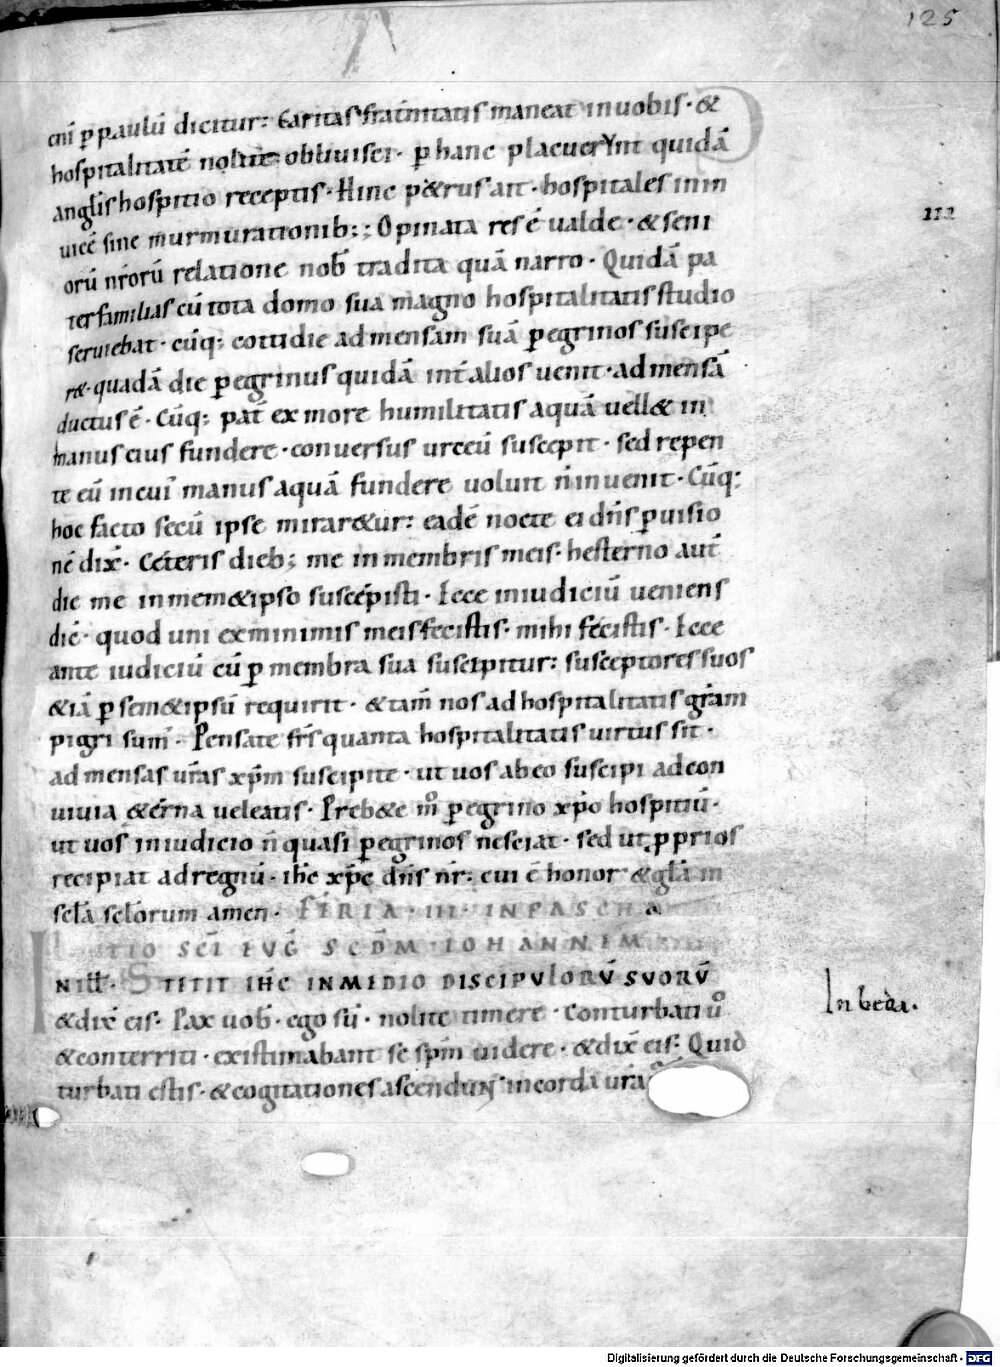 125
cni̅ p̲ paulu̅ dicitur: Caritas frat̅nitatis maneat in uobis · &
hospitalitate̅ nolite obliuisci · p̲ hanc placuerunt quida̅
angl̅is hospitio receptis · Hinc p&rus ait · hospitales in in
uice̅ sine murmurationib:; Opinata res e̅ ualde · & seni
oru̅ nr̅oru̅ relatione nob̅ tradita qua̅ narro · Quida̅ pa
terfamilias cu̅ tota domo sua magno hospitalitatis studio
seruiebat · cu̅q; cottidie ad mensam sua̅ p̲egrinos suscipe
r& · quada̅ die p̲egrinus quida̅ int̅ alios uenit · ad mensa̅
112
ductus e̅ · Cu̅q; pat̅ ex more humilitatis aqua̅ uell& in
manus eius fundere · conuersus urceu̅ suscepit · sed repen
te eu̅ in cui̅ manus aqua̅ fundere uoluit n̅ inuenit · Cu̅q;
hoc facto secu̅ ipse mirar&ur: eade̅ nocte ei dn̅s p̲uisio
ne̅ dix̅ · Ceteris dieb; me in membris meis · hesterno aut̅
die me in mem&ipso suscepisti · Ecce in iudiciu̅ ueniens
dic̅ · quod uni ex minimis meis fecistis · mihi fecistis · Ecce
ante iudiciu̅ cu̅ p̲ membra sua suscipitur: susceptores suos
&ia̅ p̲ sem&ipsu̅ requirit · & tam̅ nos ad hospitalitatis gr̅am
pigri sum̅ · Pensate fr̅s quanta hospitalitatis uirtus sit ·
ad mensas ur̅as xp̅m suscipite · ut uos ab eo suscipi ad con
uiuia &er̅na ueleatis · Preb&e m̊ p̲egrino xp̅o hospitiu̅ ·
ut uos in iudicio n̅ quasi p̲egrinos nesciat · sed ut p̲prios
recipiat ad regnu̅ · ihc̅ xp̅c dn̅s nr̅: cui e̅ honor & gl̅a in
scl̅a scl̅orum amen · FERIA · III · IN PASCHA
ITIO SC̅I EVG̅ SCD̅M · IOHANNEM
N ILL̅ · STITIT IHC̅ IN MEDIO DISCIPVLORV̅ SVORV̅
& dix̅ eis · Pax uob̅ · ego su̅ · nolite timere · Conturbati ů
& conterriti · existimabant se sp̅m uidere · & dix̅ eis: Quid
turbati estis · & cogitationes ascendunt in corda ur̅a
In beda.
Digitalisierung gefördert durch die Deutsche Forschungsgemeinschaft - DFG